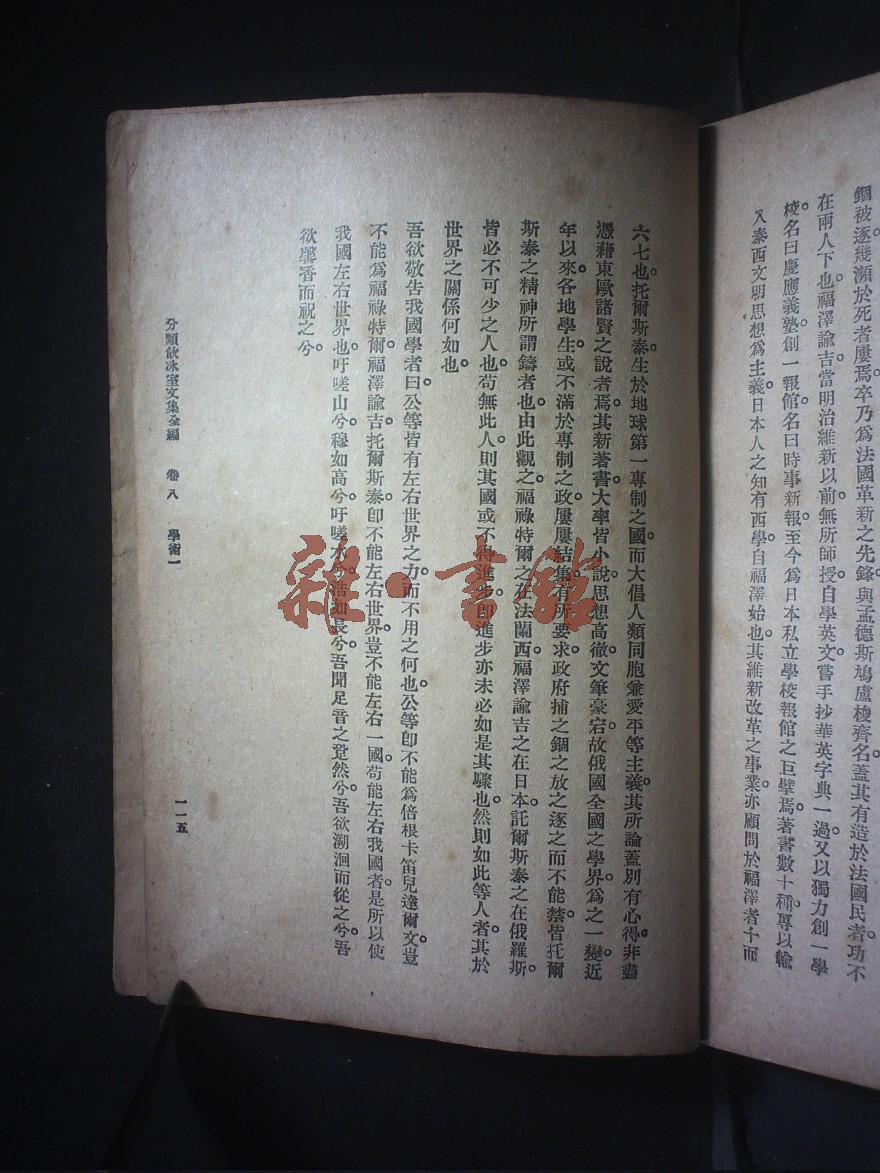 錮被逐幾瀕於死者屢焉卒乃爲法國革新之先鋒與孟德斯鳩盧梭齊名蓋其有造於法國民者功不
在兩人下也福澤諭吉當明治維新以前無所師授自學英文嘗手抄華英字典一過又以獨力創一學
校名曰慶應義塾創一報館名曰時事新報至今爲日本私立學校報館之巨擘焉著書數十種專以輸
入泰西文明思想爲主義日本人之知有西學自福澤始也其維新改革之事業亦顧問於福澤者十而
六七也。托爾斯泰生於地球第一專制之國。而大倡人類同胞兼愛平等主義。其所論蓋別有心得。非盡
憑藉東歐諸賢之說者焉。其新著書大率皆小說。思想高徹。文筆豪宕。故俄國全國之學界。爲之一變。近
年以來。各地學生。或不滿於專制之政。屢屢結集。有所要求。政府捕之錮之放之逐之。而不能禁。皆托爾
斯泰之精神所謂鑄者也。由此觀之。福祿特爾之在法蘭西。福澤諭吉之在日本。託爾斯泰之在俄羅斯。
皆必不可少之人也。苟無此人。則其國或不得進步。卽進步亦未必如是其驟也。然則如此等人者。其於
世界之關係何如也。
吾欲敬告我國學者曰。公等皆有左右世界之力。而不用之何也。公等卽不能爲倍根卡笛兒達爾文。豈
不能爲福祿特爾福澤諭吉托爾斯泰。卽不能左右世界。豈不能左右一國。苟能左右我國者。是所以使
我國左右世界也。吁嗟山兮。穆如高兮。吁嗟水兮。浩如長兮。吾聞足音之跫然兮。吾欲溯洄而從之兮。吾
欲馨香而祝之兮。
分類飲冰室文集全編 卷八 學術一
一一五
雜·書館